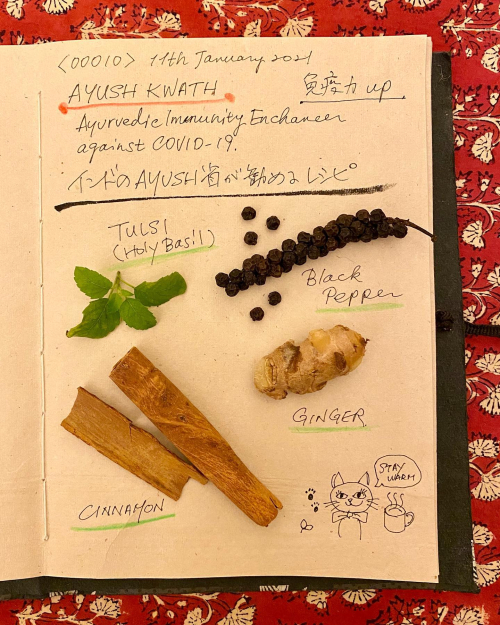 <00010> 11th January 2021
AYUSH KWATH
免疫力 up
Ayurvedic Immunity Enchaneer
against COVID-19.
インドのAYUSH省が勧めるレシピ
TULSI
(Holy Basil)
Black
Pepper
GINGER
CINNAMON
STAY
WARM